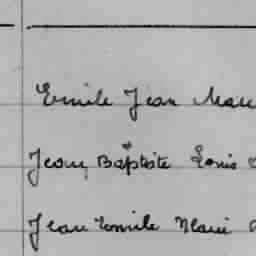 Emile Jean Mau
Jean, Baptiste Louis
Jean Emile Marie